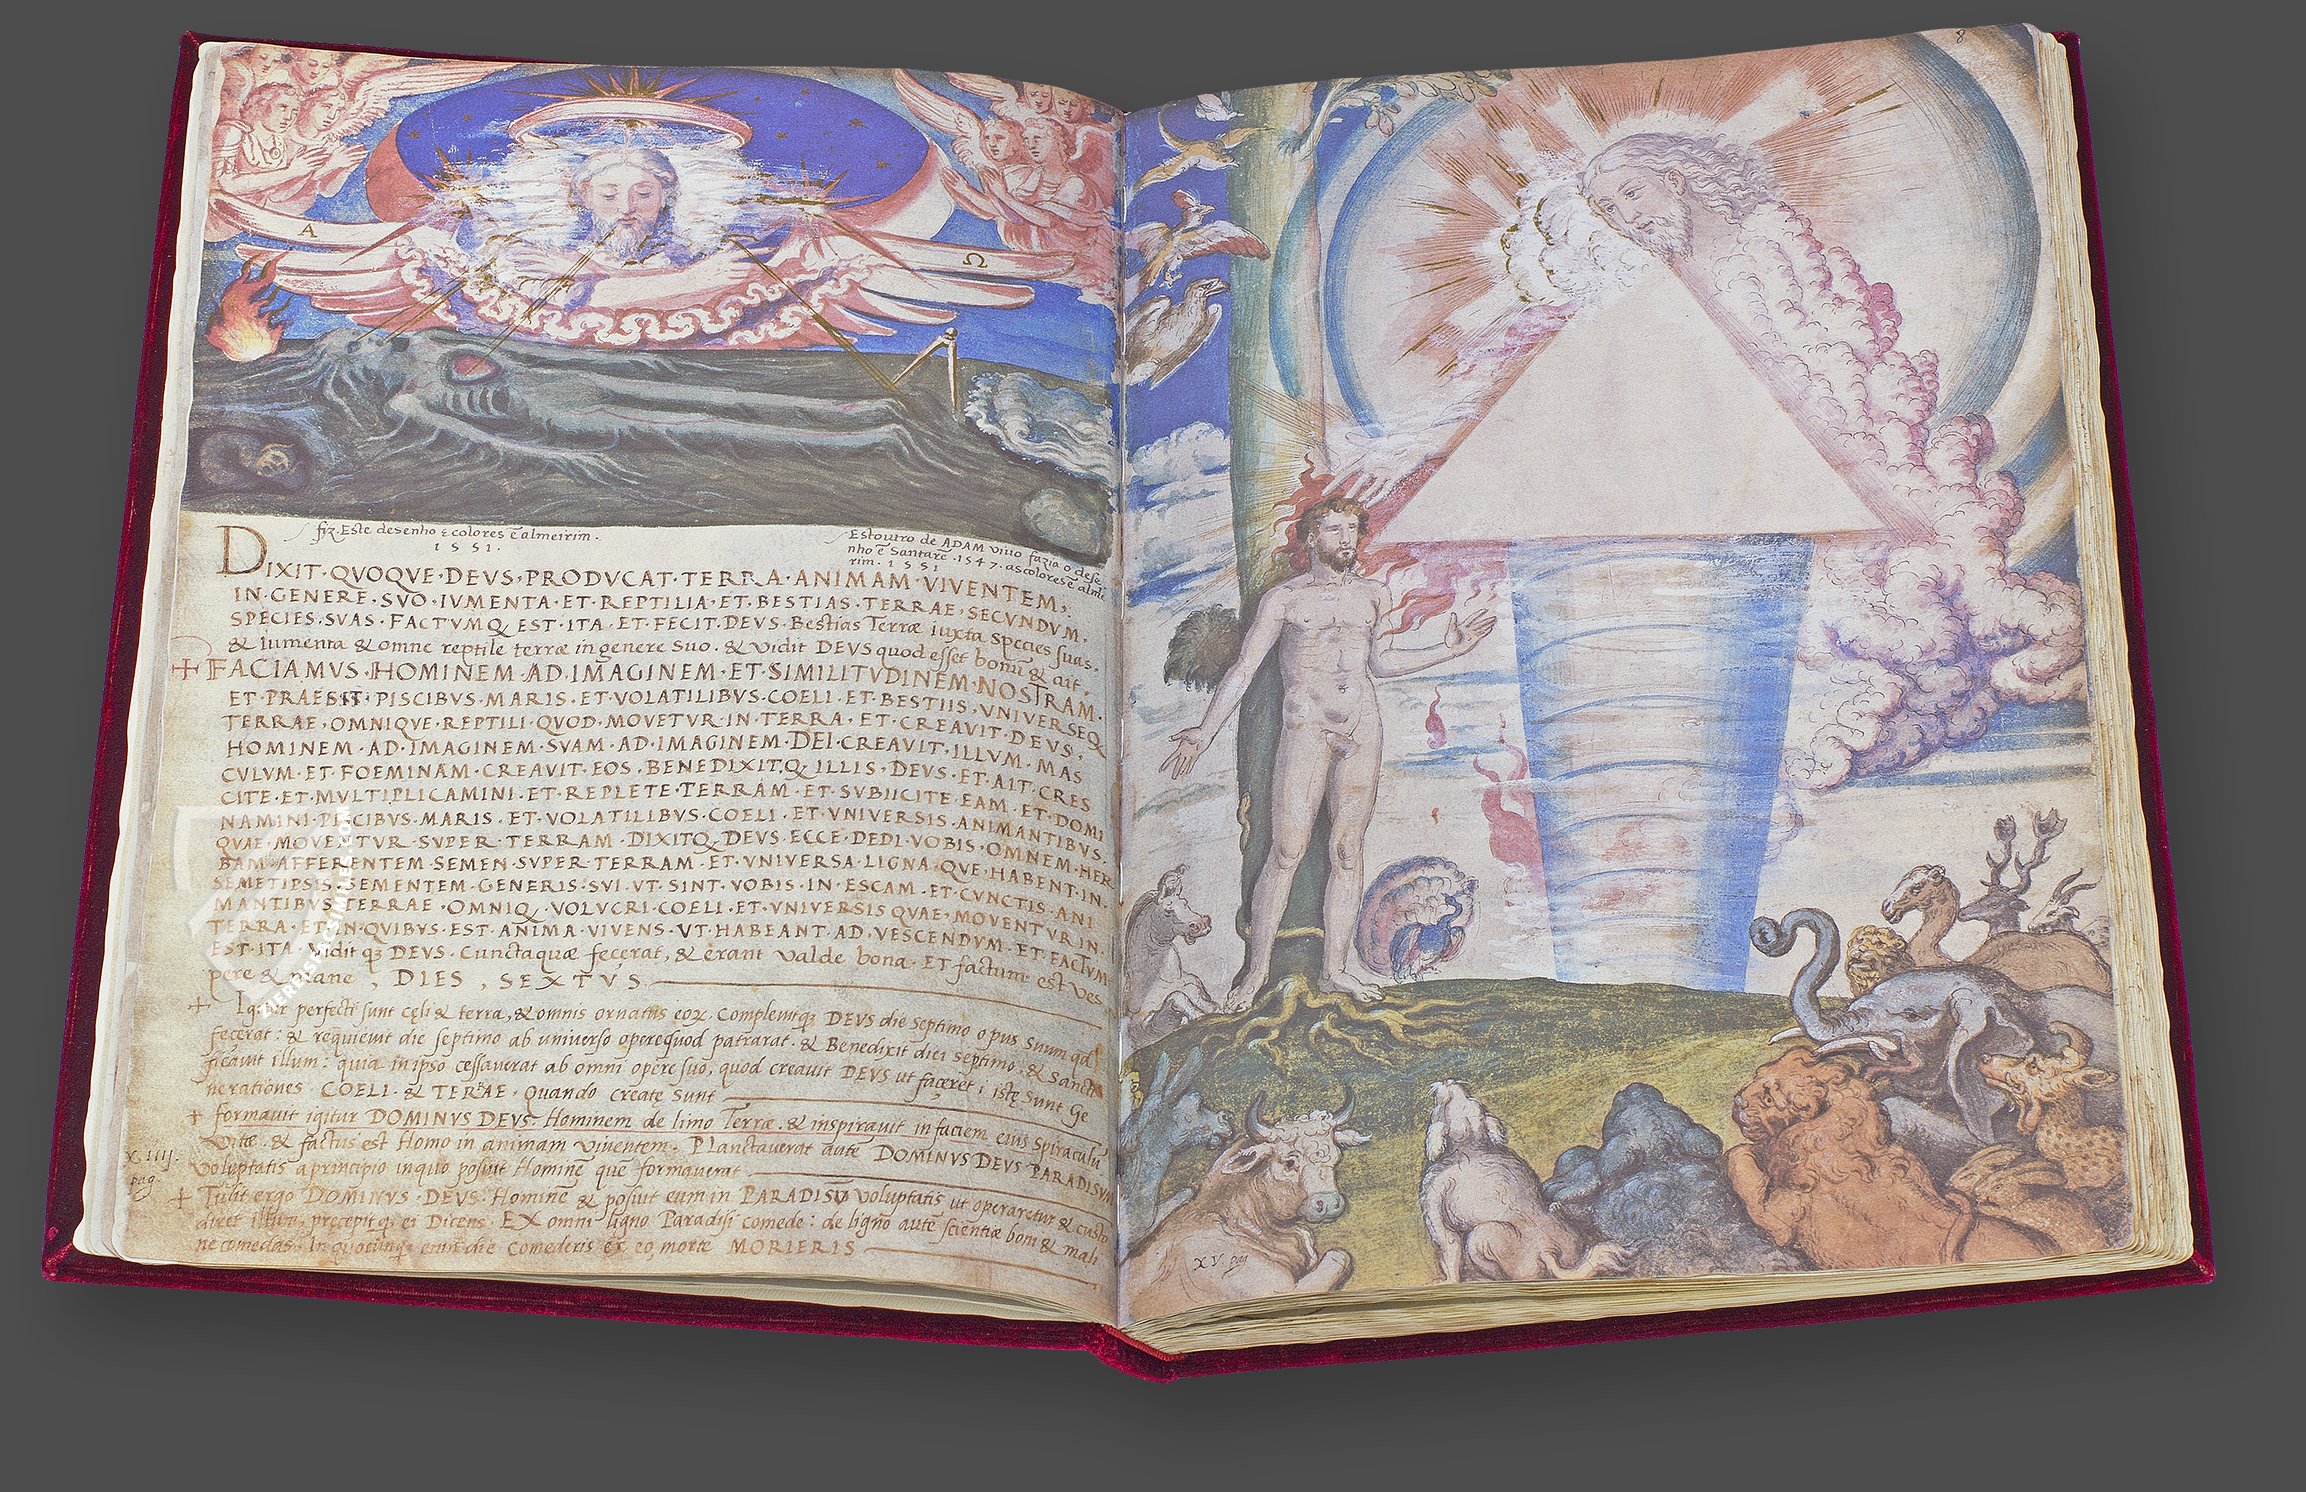 8
A
Ω
fiz. Este desenho e colores ẽ almeirim.
1551.
Estoutro de ADAM vivo fazia o dese-
nho ẽ Santarẽ .1547. as colores ẽ alme
rim. 1551
DIXIT·QVOQVE·DEVS·PRODVCAT·TERRA·ANIMAM·VIVENTEM,
IN·GENERE·SVO·IVMENTA·ET·REPTILIA·ET·BESTIAS·TERRAE·SECVNDVM·
SPECIES·SVAS·FACTVMQ EST·ITA·ET·FECIT·DEVS·Bestias Terræ iuxta species suas.
& Iumenta & omne reptile terræ in genere suo. & vidit DEVS quod esset bonũ & ait.
+ FACIAMVS·HOMINEM·AD·IMAGINEM·ET·SIMILITVDINEM·NOSTRAM·
ET·PRAESIT·PISCIBVS·MARIS·ET·VOLATILIBVS·COELI·ET·BESTIIS·VNIVERSEQ
TERRAE, OMNIQVE·REPTILI·QVOD·MOVETVR·IN·TERRA·ET·CREAVIT·DEVS,
HOMINEM·AD·IMAGINEM·SVAM·AD·IMAGINEM·DEI·CREAVIT·ILLVM·MAS
CVLVM·ET·FOEMINAM·CREAVIT·EOS·BENEDIXITQ·ILLIS·DEVS·ET·AIT·CRES
CITE·ET·MVLTIPLICAMINI·ET·REPLETE·TERRAM·ET·SVBIICITE·EAM·ET·DOMI
NAMINI·PISCIBVS·MARIS·ET·VOLATILIBVS·COELI·ET·VNIVERSIS·ANIMANTIBVS·
QVAE·MOVENTVR·SVPER·TERRAM·DIXITQ·DEVS·ECCE·DEDI·VOBIS·OMNEM·HER
BAM·AFFERENTEM·SEMEN·SVPER·TERRAM·ET·VNIVERSA·LIGNA·QVE·HABENT·IN·
SEMETIPSIS·SEMENTEM·GENERIS·SVI·VT·SINT·VOBIS·IN·ESCAM·ET·CVNCTIS·ANI
MANTIBVS·TERRAE·OMNIQ·VOLVCRI·COELI·ET·VNIVERSIS QVAE·MOVENTVR·IN·
TERRA·ET·IN·QVIBVS·EST·ANIMA·VIVENS·VT·HABEANT·AD·VESCENDVM·ET·FACTVM
EST·ITA·Vidit qȝ DEVS·Cuncta quæ fecerat, & erant valde bona·ET factum est ves
pere & mane, DIES, SEXTVS.
+ Igitur perfecti sunt cęli & terra, & omnis ornatus eoꝝ. Complevitqȝ DEVS die septimo opus suum qd
fecerat: & requievit die septimo ab universo opere quod patrarat. & Benedixit diei septimo, & sancti
ficavit illum: quia in ipso cessaverat ab omni opere suo, quod creavit DEVS ut faceret i istę sunt Ge
nerationes COELI & TERRAE. Quando create sunt
+ formavit igitur DOMINVS DEVS Hominem de limo Terræ. & inspiravit in faciem eius spiraculũ
vitæ. & factus est Homo in animam viventem. Planctaverat autẽ DOMINVS DEVS PARADISVM
voluptatis a principio in quo posuit Hominẽ que formaverat
XIIIJ.
pag.
+ Tulit ergo DOMINVS·DEVS·Hominẽ & posuit eum in PARADISV voluptatis ut operaretur & custo
diret illum, precepit qȝ ei Dicens, EX omni ligno Paradisi comede: de ligno autẽ scientiæ boni & mali
ne comedas. In quocunqȝ enim die comederis ex eo, morte MORIERIS
XV. pag